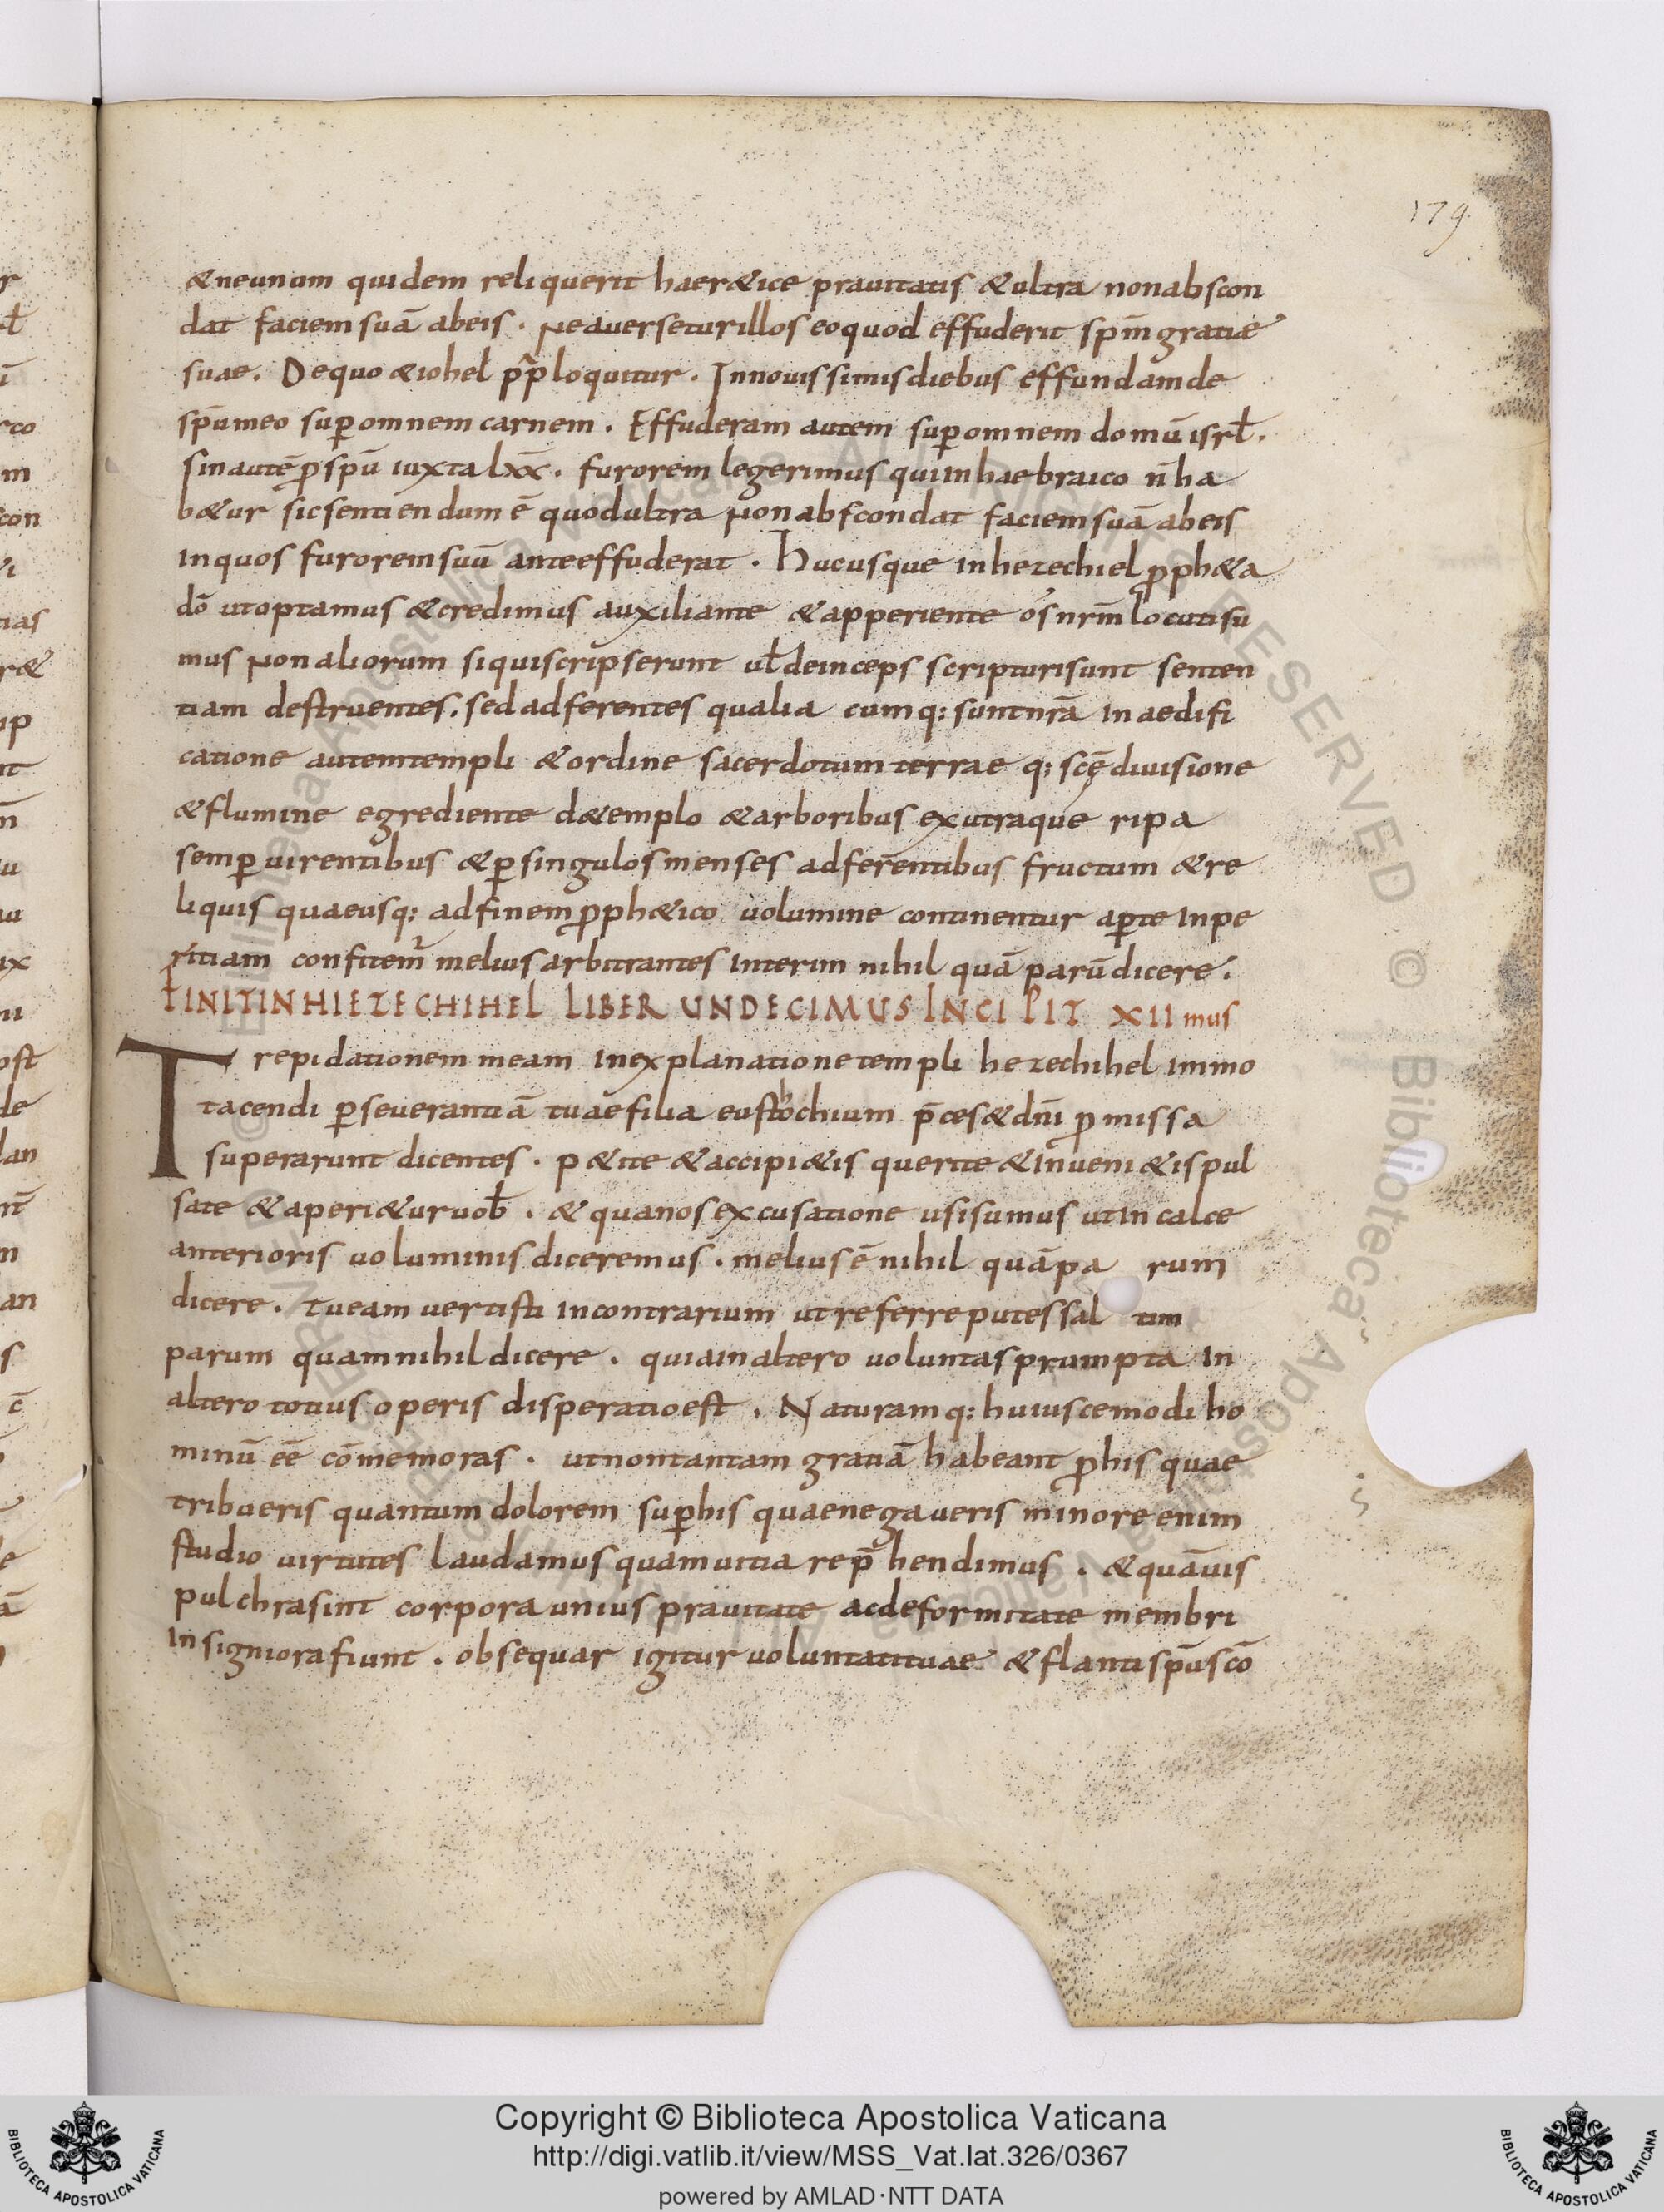 179
&neunum quidem reliquerit haer&ice prauitatis &ultra nonabscon
dat faciem suā abeis . Neauerseturillos eoquod effuderit sp̄m gratiae
suae. Dequo &iohel pp̄ loquitur . Innouissimisdiebus effundamde
sp̄umeo sup̱omnem carnem . Effuderam autem sup̱omnem domū isrł.
sinautē ꝓ spū iuxta lxx̄ . furorem legerimus quiinhaebraico n̄ ha
b&ur sicsentiendum ē quodultra Nonabscondat faciemsuā abeis
inquos furoremsuū anteeffuderat . Hucusque inhezechiel ꝓph&a
dō utoptamus &credimus auxiliante &apperiente os nrm̄ locutisu
mus Nonaliorum siquiscripserunt uł deinceps scripturisunt senten
tiam destruentes. sed adferentes qualia cumq; suntnrā Inaedifi
catione autemtempli &ordine sacerdotum terrae q; scę̄ diuisione
&flumine egrediente d&emplo &arboribus exutraque ripa
semꝑ uirentibus &ꝑ singulosmenses adferentibus fructum &re
liquis quaeusq; adfinem ꝓph&ico uolumine continentur aꝑte Inpe
ritiam confitem̄ meliusarbitrantes Interim nihil quā parū dicere.
FINITINHIEZECHIHEL LIBER UNDECIMUS INCIPIT XIImus
Trepidationem meam Inexplanationetempli hezechihel Immo
tacendi ꝑseuerantiā tuaefilia eustochium p̄ces&dn̄i ꝓmissa
superarunt dicentes . p&ite &accipi&is querite &Inueni&is pul
sate &aperi&uruob̄ . &quanosexcusatione usisumus utIn calce
anterioris uoluminis diceremus . melius ē nihil quā pa rum
dicere . tueam uertisti Incontrarium utreferreputes sal tim
parum quamnihildicere . quiainaltero uoluntasprumpta In
altero totius operis disperatioest . Naturamq; huiuscemodi ho
minū eē cōmemoras . utnontantam gratiā habeant ꝓhis quae
tribueris quantum dolorem suꝑhis quaenegaueris minore enim
studio uirtutes laudamus quamuitia rep̄hendimus . &quāuis
pulchrasint corpora unius prauitate acdeformitate membri
Insigniorafiunt . obsequar igitur uoluntatituae &flantisp̄uscō
Copyright © Biblioteca Apostolica Vaticana
http://digi.vatlib.it/view/MSS_Vat.lat.326/0367
powered by AMLAD·NTT DATA
BIBLIOTECA APOSTOLICA VATICANA
BIBLIOTECA APOSTOLICA VATICANA